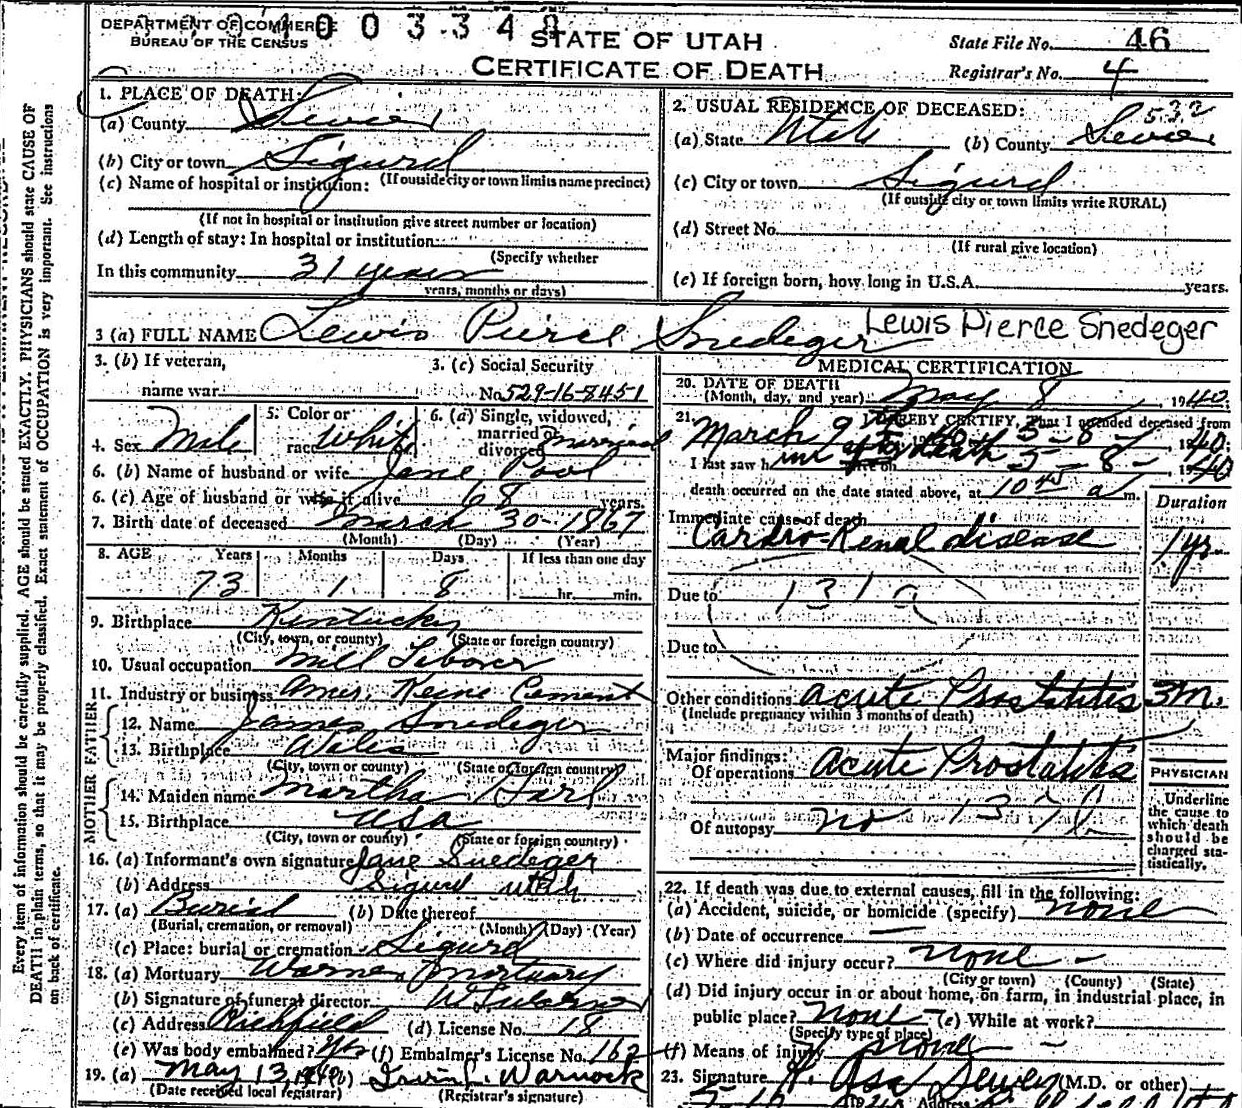 DEPARTMENT OF COMMERCE
BUREAU OF THE CENSUS
1003348
STATE OF UTAH
CERTIFICATE OF DEATH
State File No. 46
Registrar's No. 4
1. PLACE OF DEATH:
(a) County Sevier
(b) City or town Sigurd
(If outside city or town limits name precinct)
(c) Name of hospital or institution:
(If not in hospital or institution give street number or location)
(d) Length of stay: In hospital or institution
(Specify whether
In this community 31 years
years, months or days)
2. USUAL RESIDENCE OF DECEASED:
532
(a) State Utah (b) County Sevier
(c) City or town Sigurd
(If outside city or town limits write RURAL)
(d) Street No.
(If rural give location)
(e) If foreign born, how long in U.S.A. years.
3 (a) FULL NAME Lewis Pierce Snedeger Lewis Pierce Snedeger
3. (b) If veteran,
name war
3. (c) Social Security
No. 529-16-8451
4. Sex Male
5. Color or
race White
6. (a) Single, widowed,
married
divorced married
6. (b) Name of husband or wife Jane Pool
6. (c) Age of husband or wife if alive 68 years.
7. Birth date of deceased March 30 - 1867
(Month) (Day) (Year)
8. AGE Years Months Days If less than one day
73 1 8 hr. min.
9. Birthplace Kentucky
(City, town, or county) (State or foreign country)
10. Usual occupation Mill Laborer
11. Industry or business Amer. Keene Cement
FATHER
12. Name James Snedeger
13. Birthplace Wales
(City, town or county) (State or foreign country)
MOTHER
14. Maiden name Martha
15. Birthplace USA
(City, town or county) (State or foreign country)
16. (a) Informant's own signature Jane Snedeger
(b) Address Sigurd Utah
17. (a) Burial (b) Date thereof
(Burial, cremation, or removal) (Month) (Day) (Year)
(c) Place: burial or cremation Sigurd
18. (a) Mortuary Warner Mortuary
(b) Signature of funeral director
(c) Address Richfield (d) License No. 18
(e) Was body embalmed? Yes (f) Embalmer's License No. 162
19. (a) May 13, 1940 (b) Irvin L. Warnock
(Date received local registrar) (Registrar's signature)
MEDICAL CERTIFICATION
20. DATE OF DEATH
(Month, day, and year) May 8, 1940
21. I HEREBY CERTIFY, That I attended deceased from
March 9 40 to 5-8-, 1940
I last saw him after death 5-8-1940
death occurred on the date stated above, at 10 45 a m.
Immediate cause of death
Duration
Cardio-Renal disease 1 yr.
Due to 131a
Due to
Other conditions acute Prostatitis 3 m.
(Include pregnancy within 3 months of death)
Major findings:
Of operations acute Prostatitis
Of autopsy no 137b
PHYSICIAN
Underline
the cause to
which death
should be
charged sta-
tistically.
22. If death was due to external causes, fill in the following:
(a) Accident, suicide, or homicide (specify) none
(b) Date of occurrence —
(c) Where did injury occur? none -
(City or town) (County) (State)
(d) Did injury occur in or about home, on farm, in industrial place, in
public place? none (e) While at work?
(Specify type of place)
(f) Means of injury none
23. Signature H. Asa Dewey (M.D. or other)
Address
Every item of information should be carefully supplied. AGE should be stated EXACTLY. PHYSICIANS should state CAUSE OF
DEATH in plain terms, so that it may be properly classified. Exact statement of OCCUPATION is very important. See instructions
on back of certificate.